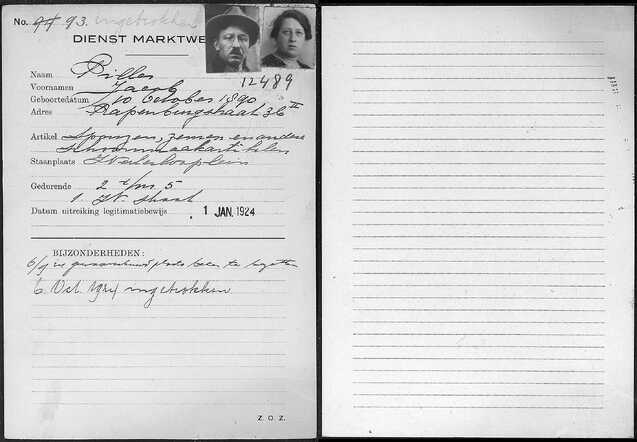 No. 93. ingetrokken
DIENST MARKTWE
12489
Naam Piller
Voornamen Jacob
Geboortedatum 10 October 1890
Adres Rapenburgstraat 36 II
Artikel Sponzen, zemen en andere
schoonmaakartikelen
Staanplaats Waterlooplein
Gedurende 2 t/m 5
1. W. straat
Datum uitreiking legitimatiebewijs 1 JAN. 1924
BIJZONDERHEDEN:
te
6 Oct. 1924 ingetrokken
Z. O. Z.